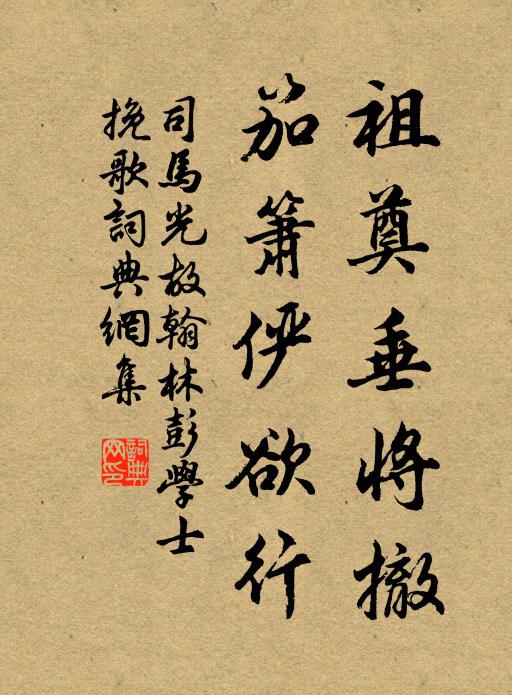 祖奠垂将撤
笳箫俨欲行
司馬光故翰林彭學士
挽歌詞典網集
詞典網印